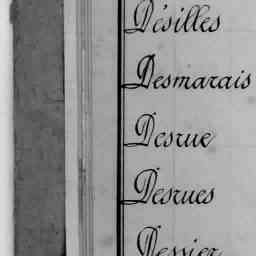 Désilles
Desmarais
Desrue
Desrues
Dessier